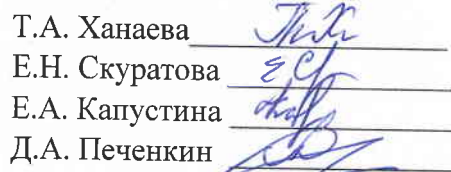 Т.А. Ханаева
Е.Н. Скуратова
Е.А. Капустина
Д.А. Печенкин